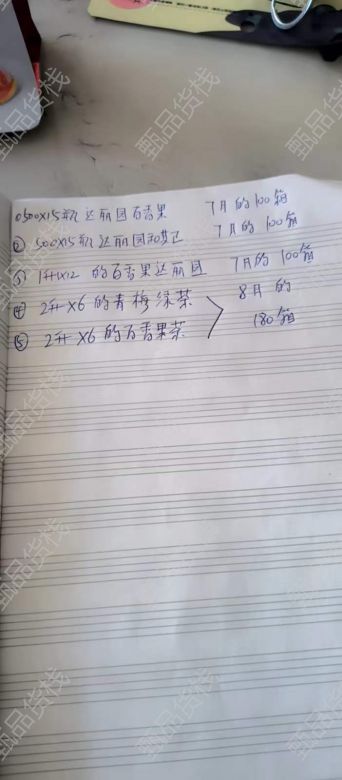 ①500×15瓶达利园百香果 7月的100箱
② 500×15瓶达利园和其正 7月的100箱
③ 1升×12 的百香果达利园 7月的100箱
④ 2升×6的青梅绿茶 8月的
⑤ 2升×6的百香果茶 180箱
甄品货栈